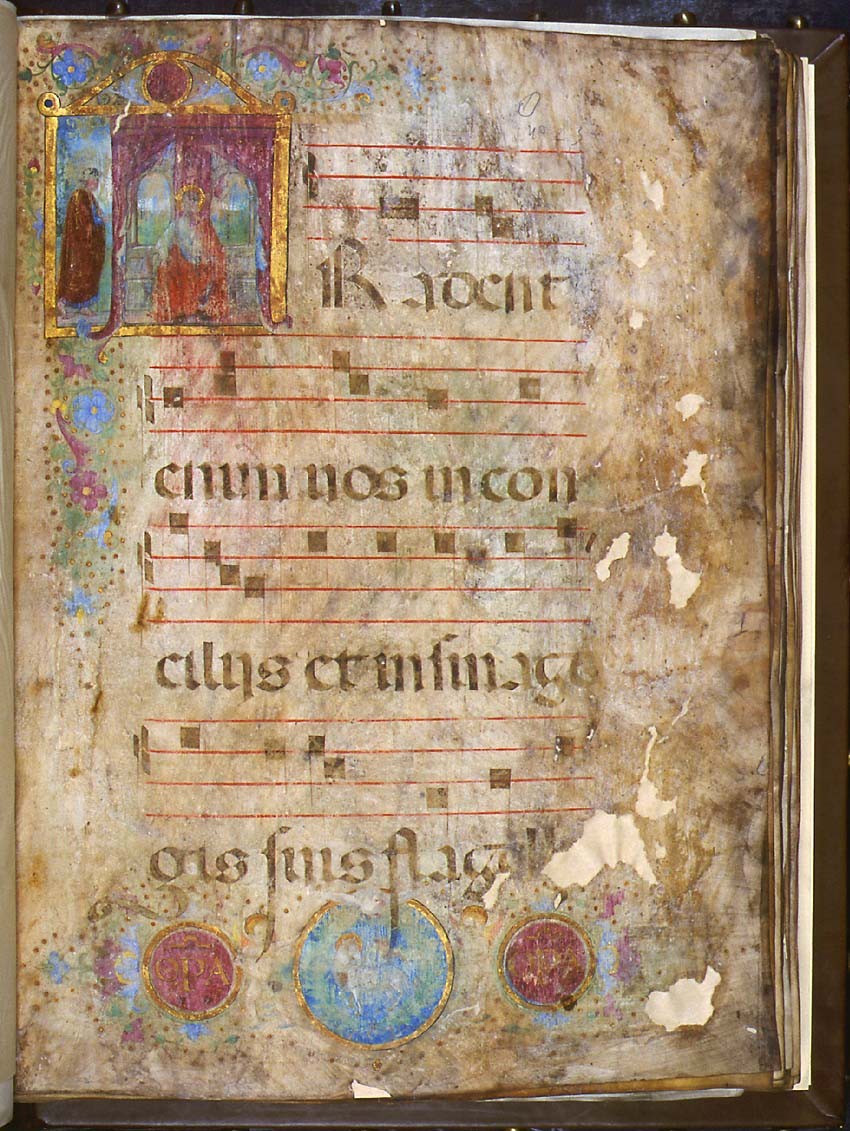 Radent
enim uos in con
cilijs et in sinago
gis suis flage
OPA